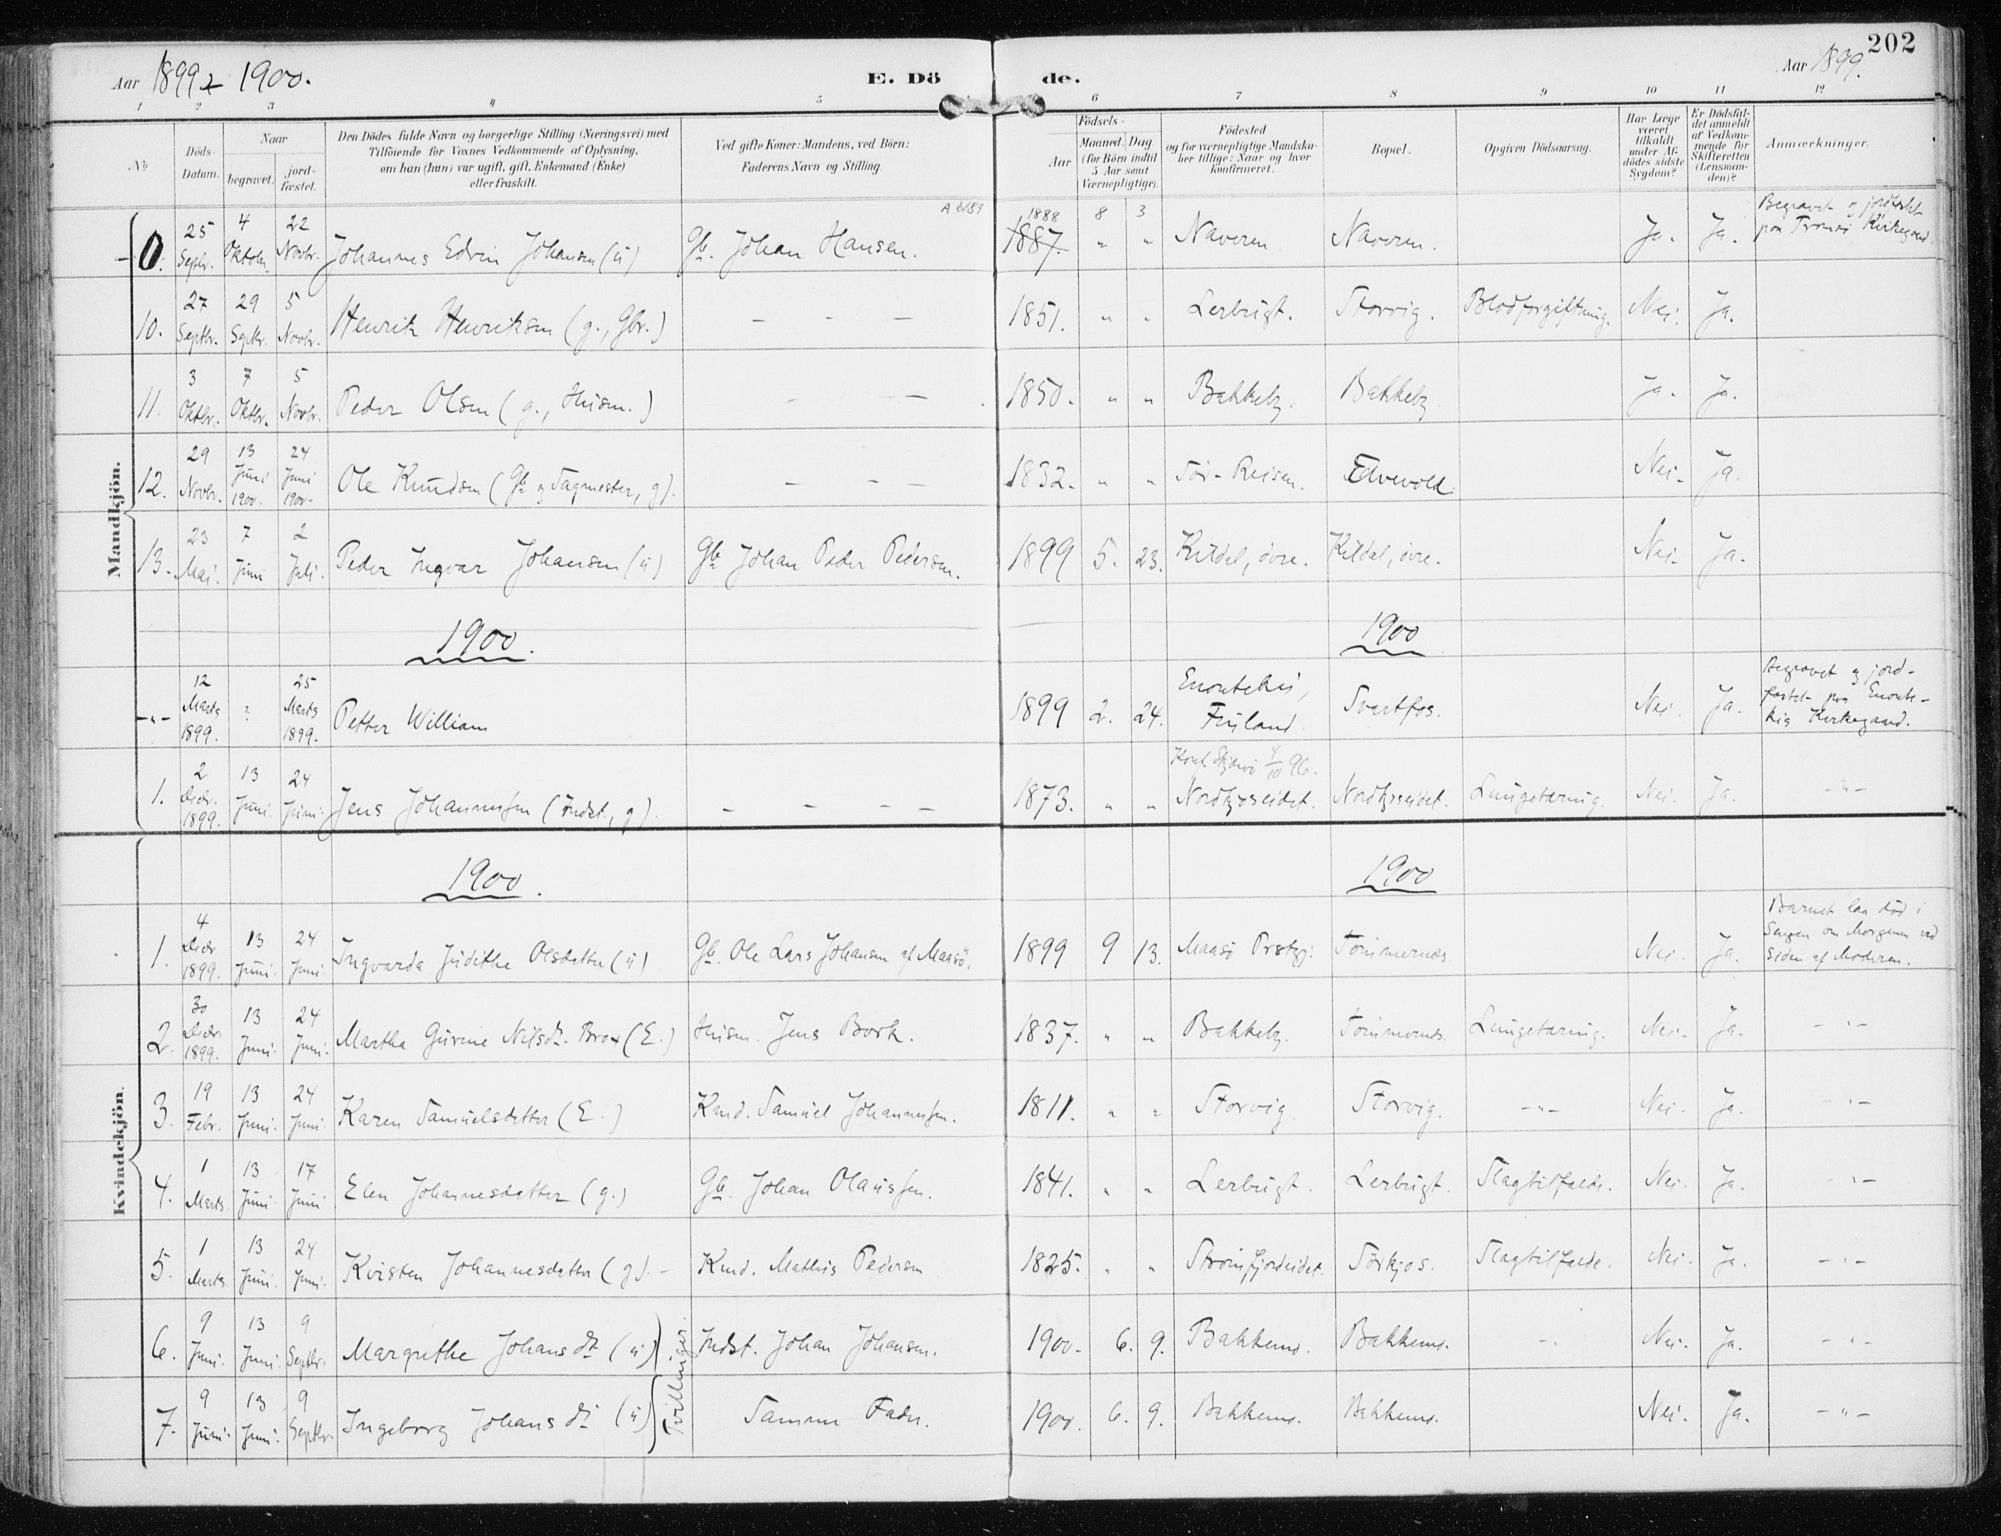 202
Aar 1899 - 1900.
E. Döde.
Aar 1899.
1 2 3 4 5 6 7 8 9 10 11 12
No
Döds-Datum.
Naar begravet. jordfæstet.
Den Dödes fulde Navn og borgerlige Stilling (Næringsvei) med Tilföiende for Voxnes Vedkommende af Oplysning, om han (hun) var ugift, gift, Enkemand (Enke) eller fraskilt.
Ved gifte Koner: Mandens, ved Börn: Faderens Navn og Stilling.
Födsels- Aar Maaned. Dag (for Börn indtil 5 Aar samt Værnepligtige).
Födested og for værnepligtige Mandskaber tillige: Naar og hvor konfirmeret.
Bopæl.
Opgiven Dödsaarsag.
Har Læge været tilkaldt under Afdödes sidste Sygdom?
Er Dödsfaldet anmeldt af Vedkommende for Skifteretten (Lensmanden)?
Anmærkninger.
Mandkjön.
0. 25 Septbr. 4 Oktobr. 22 Novbr. Johannes Edvin Johansen (ü) Gb. Johan Hansen. 1887. 1888 8 3 " " Naveren Naveren. Ja. Ja. Begravet og jordfæstet paa Tromsö Kirkegaard.
10. 27 Septbr. 29 Septbr. 5 Novbr. Henrik Henriksen (g., Gbr.) - - - 1851. " " Lerbugt. Storvig. Blodforgiftning. Nei. Ja.
11. 3 Oktbr. 7 Oktbr. 5 Novbr. Peder Olsen (g., Husm.) - - 1850. " " Bakkeby. Bakkeby. Ja. Ja.
12. 29 Novbr. 13 Juni 1900. 24 Juni 1900. Ole Knudsen (Gb og Tagmester, g). - - - 1832. " " Sör-Reisen. Elvevold. Nei. Ja.
13. 23 Mai. 7 Juni 2 Juli. Peder Ingvar Johansen (ü) Gb Johan Peder Pedersen. 1899 5. 23. Kildal, övre. Kildal, övre. Nei. Ja.
1900. 1900
-"- 12 Marts 1899. ? 25 Marts 1899. Petter William 1899 2. 24. Enontekis, Finland. Svartfos. Nei. Ja. Begravet og jordfæstet paa Enontekis Kirkegaard.
1. 2 Decbr. 1899. 13 Juni. 24 Juni. Jens Johannessen (Indst., g). - - - - 1873. " " Konf. Skjervö 4/10 96. Nordkjoseidet. Nordkjoseidet. Lungetæring. Nei. Ja. -"-
1900. 1900
Kvindekjön.
1. 4 Decbr 1899. 13 Juni. 24 Juni. Ingvarda Judithe Olsdatter (ü) Gb. Ole Lars Johansen af Maasö. 1899 9 13. Maasö Prstgj. Tömmernes. Nei. Ja. Barnet laa död i Sengen om Morgenen ved Siden af Moderen.
2. 30 Decbr. 1899. 13 Juni. 24 Juni. Martha Gurine Nilsdt. Brox (E.) Husm. Jens Bork. 1837. " " Bakkeby. Tömmernes. Lungetæring. Nei. Ja. -"-
3. 19 Febr. 13 Juni. 24 Juni. Karen Samuelsdatter (E.) Kmd. Samuel Johannessen. 1811. " " Storvig. Storvig. -"- Nei. Ja. -"-
4. 1 Marts. 13 Juni. 17 Juni Elen Johannesdatter (g.) Gb. Johan Olaussen. 1841. " " Lerbugt. Lerbugt. Slagtilfælde. Nei. Ja. -"-
5. 1 Marts. 13 Juni. 24 Juni. Kristen Johannesdatter (g). - Kmd. Mathis Pedersen 1825. " " Strömfjordeidet. Sörkjos. Slagtilfælde. Nei. Ja. -"-
6. 9 Juni. 13 Juni. 9 Septbr. Margrethe Johansdt (ü) Indst. Johan Johansen. 1900. 6. 9. Bakkenes. Bakkenes. - Nei. Ja. -"-
Tvillinger.
7. 9 Juni. 13 Juni. 9 Septbr. Ingeborg Johansdt (ü) Samme Fader. 1900. 6. 9. Bakkenes. Bakkenes. Nei. Ja. -"-